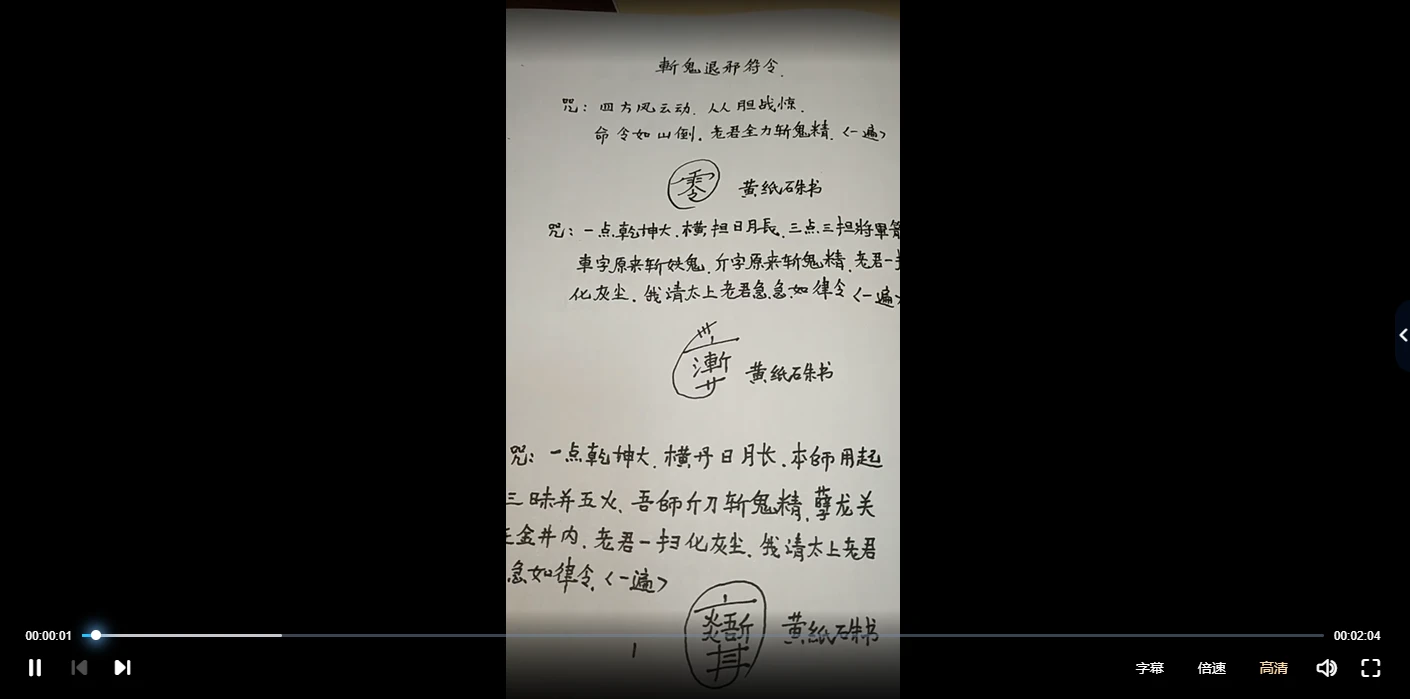 斬鬼退邪符令.
咒：四方风云动.人人胆战惊.
命令如山倒.老君全力斩鬼精.<一遍>
零 黄纸硃书
咒：一点乾坤大.横担日月長.三点三担將軍
車字原来斩妖鬼.斤字原来斩鬼精.老君一
化灰尘.俄请太上老君急急如律令<一遍>
黄纸硃书
咒：一点乾坤大.横丹日月长.本師用起
三昧并五火.吾師斤刀斩鬼精.孽龙关
金井内.老君一扫化灰尘.俄请太上老君
急如律令.<一遍>
黄纸硃书
1
00:00:01
00:02:04
字幕 倍速 高清